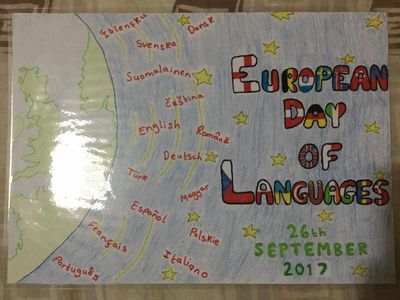 Íslensku
Dansk
Svenska
Suomalainen
Čeština
English
Română
Deutsch
Türk
Magyar
Español
Polskie
Français
Italiano
Português
EUROPEAN
DAY
OF
LANGUAGES
26th
SEPTEMBER
2017